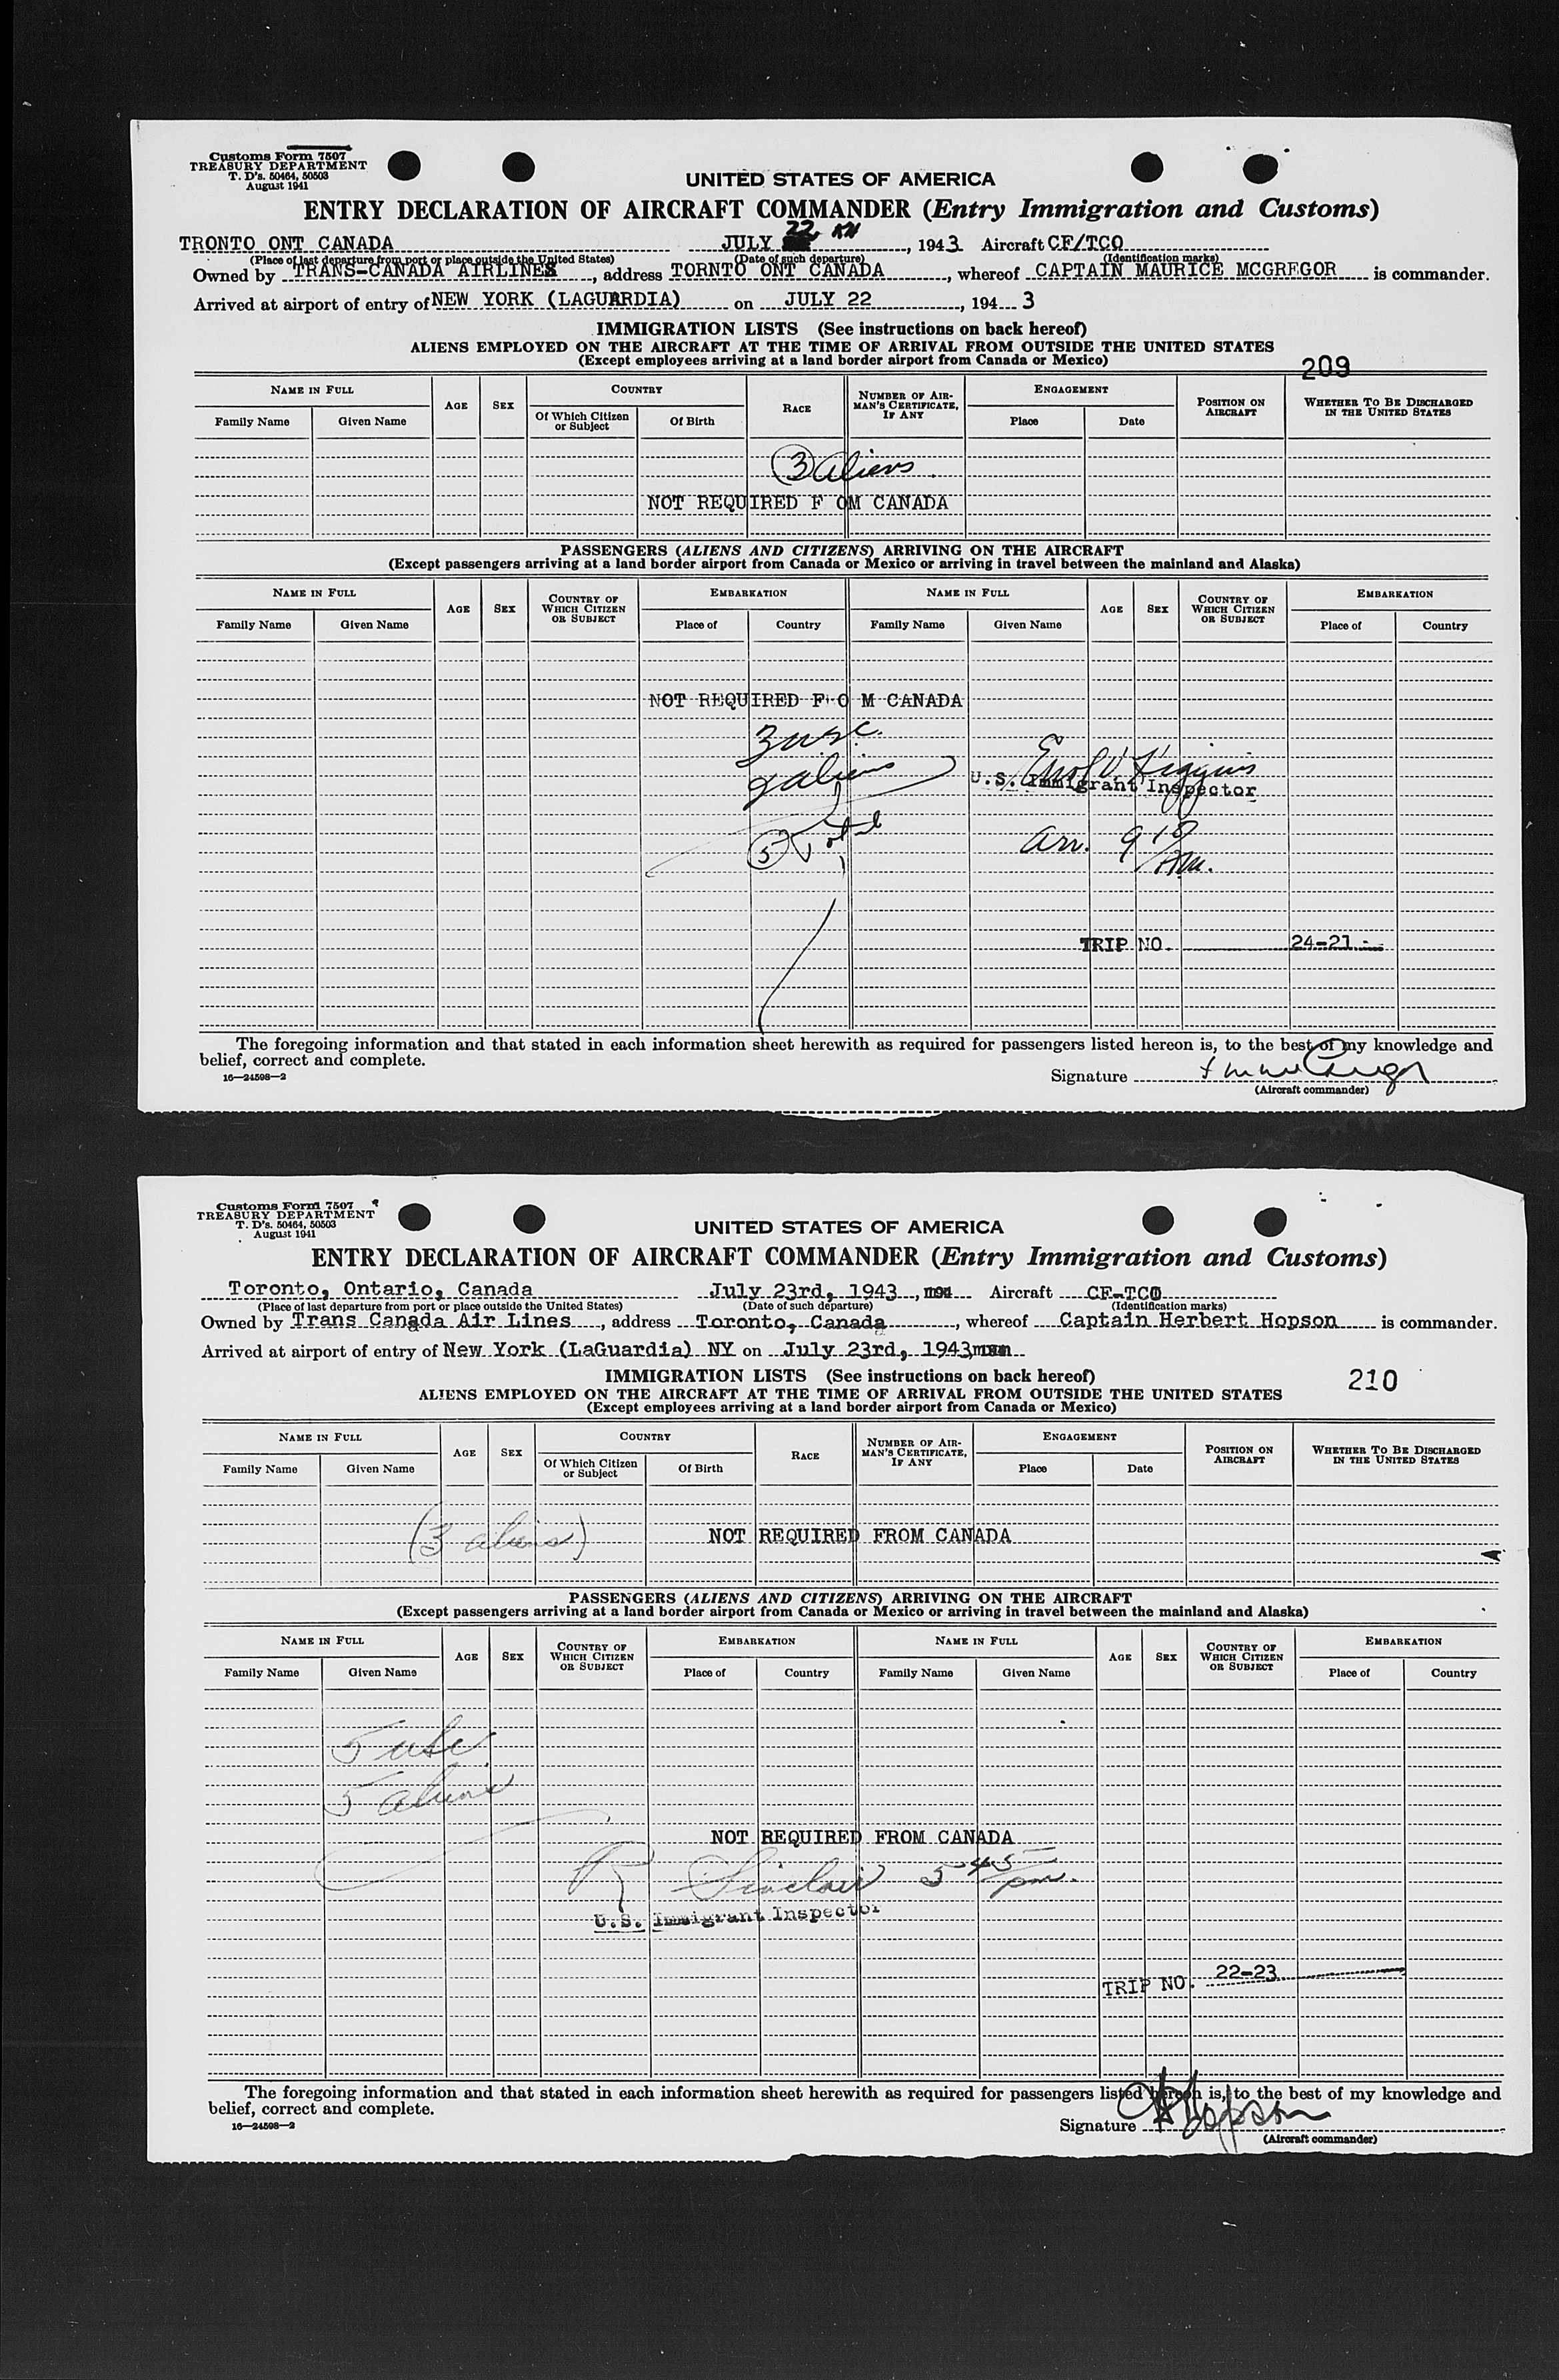 Customs Form 7507
TREASURY DEPARTMENT
T. D's. 50464, 50503
August 1941
UNITED STATES OF AMERICA
ENTRY DECLARATION OF AIRCRAFT COMMANDER (Entry Immigration and Customs)
TRONTO ONT CANADA JULY 22, 1943 Aircraft CF/TCO
(Place of last departure from port or place outside the United States) (Date of such departure) (Identification marks)
Owned by TRANS-CANADA AIRLINES, address TORNTO ONT CANADA, whereof CAPTAIN MAURICE MCGREGOR is commander.
Arrived at airport of entry of NEW YORK (LAGUARDIA) on JULY 22, 194 3
IMMIGRATION LISTS (See instructions on back hereof)
ALIENS EMPLOYED ON THE AIRCRAFT AT THE TIME OF ARRIVAL FROM OUTSIDE THE UNITED STATES
(Except employees arriving at a land border airport from Canada or Mexico)
209
NAME IN FULL AGE SEX COUNTRY RACE NUMBER OF AIRMAN'S CERTIFICATE, IF ANY ENGAGEMENT POSITION ON AIRCRAFT WHETHER TO BE DISCHARGED IN THE UNITED STATES
Family Name Given Name Of Which Citizen or Subject Of Birth Place Date
3 aliens
NOT REQUIRED F OM CANADA
PASSENGERS (ALIENS AND CITIZENS) ARRIVING ON THE AIRCRAFT
(Except passengers arriving at a land border airport from Canada or Mexico or arriving in travel between the mainland and Alaska)
NAME IN FULL AGE SEX COUNTRY OF WHICH CITIZEN OR SUBJECT EMBARKATION NAME IN FULL AGE SEX COUNTRY OF WHICH CITIZEN OR SUBJECT EMBARKATION
Family Name Given Name Place of Country Family Name Given Name Place of Country
NOT REQUIRED F O M CANADA
3 usc.
2 aliens
U.S. Immigrant Inspector
5 Total
Arr. 9 18 AM.
TRIP NO. 24-21
The foregoing information and that stated in each information sheet herewith as required for passengers listed hereon is, to the best of my knowledge and
belief, correct and complete.
16—24598-2
Signature
(Aircraft commander)
Customs Form 7507
TREASURY DEPARTMENT
T. D's. 50464, 50503
August 1941
UNITED STATES OF AMERICA
ENTRY DECLARATION OF AIRCRAFT COMMANDER (Entry Immigration and Customs)
Toronto, Ontario, Canada July 23rd, 1943, Aircraft CF-TCO
(Place of last departure from port or place outside the United States) (Date of such departure) (Identification marks)
Owned by Trans Canada Air Lines, address Toronto, Canada, whereof Captain Herbert Hopson is commander.
Arrived at airport of entry of New York (LaGuardia) NY on July 23rd, 1943
IMMIGRATION LISTS (See instructions on back hereof)
210
ALIENS EMPLOYED ON THE AIRCRAFT AT THE TIME OF ARRIVAL FROM OUTSIDE THE UNITED STATES
(Except employees arriving at a land border airport from Canada or Mexico)
NAME IN FULL AGE SEX COUNTRY RACE NUMBER OF AIRMAN'S CERTIFICATE, IF ANY ENGAGEMENT POSITION ON AIRCRAFT WHETHER TO BE DISCHARGED IN THE UNITED STATES
Family Name Given Name Of Which Citizen or Subject Of Birth Place Date
(3 aliens) NOT REQUIRED FROM CANADA
PASSENGERS (ALIENS AND CITIZENS) ARRIVING ON THE AIRCRAFT
(Except passengers arriving at a land border airport from Canada or Mexico or arriving in travel between the mainland and Alaska)
NAME IN FULL AGE SEX COUNTRY OF WHICH CITIZEN OR SUBJECT EMBARKATION NAME IN FULL AGE SEX COUNTRY OF WHICH CITIZEN OR SUBJECT EMBARKATION
Family Name Given Name Place of Country Family Name Given Name Place of Country
5 usc
5 aliens
NOT REQUIRED FROM CANADA
R Sinclair 5 45 pm.
U.S. Immigrant Inspector
TRIP NO. 22-23
The foregoing information and that stated in each information sheet herewith as required for passengers listed hereon is, to the best of my knowledge and
belief, correct and complete.
16—24598-2
Signature H Hopson
(Aircraft commander)